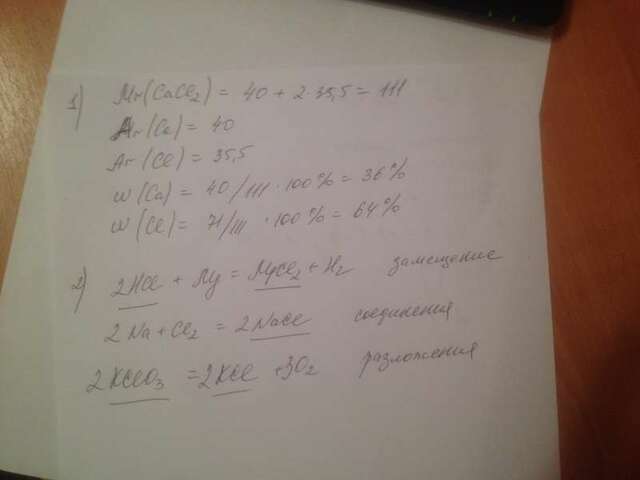 1) Mr(CaCl2) = 40 + 2·35,5 = 111
Ar(Ca) = 40
Ar(Cl) = 35,5
W(Ca) = 40/111 · 100% = 36%
W(Cl) = 71/111 · 100% = 64%
2) 2HCl + Mg = MgCl2 + H2 замещение
2Na + Cl2 = 2NaCl соединения
2KClO3 = 2KCl + 3O2 разложения